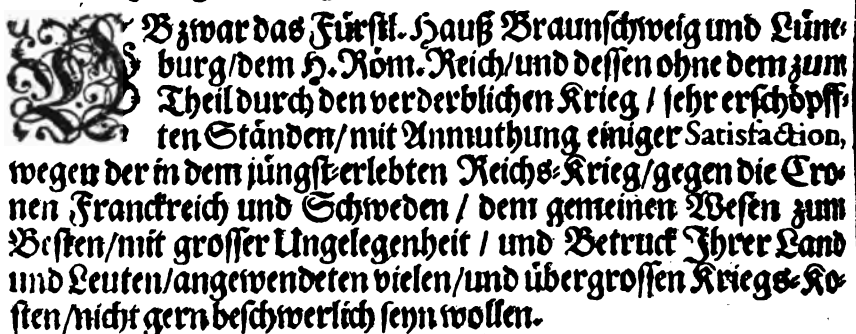 OBzwar das Fürstl. Hauß Braunschweig und Lüne-
burg/dem H. Röm. Reich/und dessen ohne dem zum
Theil durch den verderblichen Krieg / sehr erschöpff-
ten Ständen/mit Anmuthung einiger Satisfaction,
wegen der in dem jüngst-erlebten Reichs-Krieg/gegen die Cro-
nen Franckreich und Schweden / dem gemeinen Wesen zum
Besten/mit grosser Ungelegenheit / und Betruck Ihrer Land
und Leuten/angewendeten vielen/und übergrossen Kriegs-Ko-
sten/nicht gern beschwerlich seyn wollen.